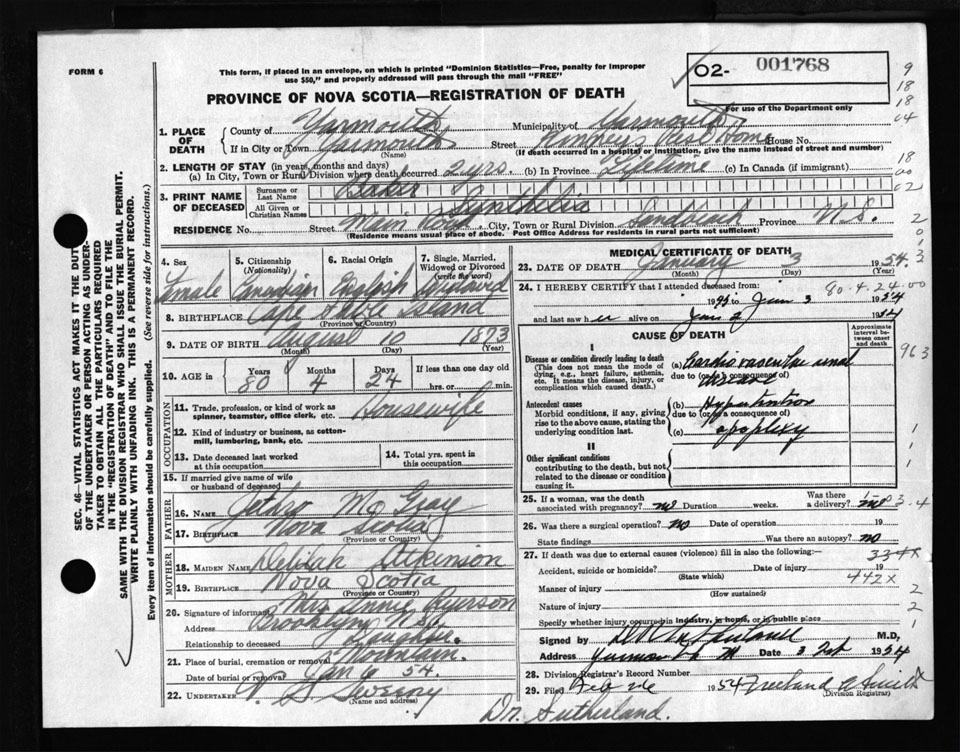 FORM 6
This form, if placed in an envelope, on which is printed "Dominion Statistics—Free, penalty for improper
use $50," and properly addressed will pass through the mail "FREE"
O2- 001768
For use of the Department only
PROVINCE OF NOVA SCOTIA—REGISTRATION OF DEATH
9
18
18
04
18
00
02
2
0
1
3
1. PLACE OF DEATH
County of Yarmouth Municipality of Yarmouth
If in City or Town Yarmouth Street Kinney Rest Home House No.
(Name) (If death occurred in a hospital or institution, give the name instead of street and number)
2. LENGTH OF STAY (in years, months and days)
(a) In City, Town or Rural Division where death occurred 2 yrs. (b) In Province Lifetime (c) In Canada (if immigrant)
3. PRINT NAME OF DECEASED
Surname or Last Name Baker
All Given or Christian Names Synthelia
RESIDENCE No. Street Main Road City, Town or Rural Division Sandbeach Province N.S.
(Residence means usual place of abode. Post Office Address for residence in rural parts not sufficient)
4. Sex Female
5. Citizenship (Nationality) Canadian
6. Racial Origin English
7. Single, Married, Widowed or Divorced (write the word) Widowed
8. BIRTHPLACE Cape Sable Island
(Province or Country)
9. DATE OF BIRTH August 10 1873
(Month) (Day) (Year)
10. AGE in Years Months Days If less than one day
80 4 24 hrs. or min.
OCCUPATION
11. Trade, profession, or kind of work as spinner, teamster, office clerk, etc. Housewife
12. Kind of industry or business, as cotton-mill, lumbering, bank, etc.
13. Date deceased last worked at this occupation
14. Total yrs. spent in this occupation
15. If married give name of wife or husband of deceased
FATHER
16. NAME Jethro McGray
17. BIRTHPLACE Nova Scotia
(Province or Country)
MOTHER
18. MAIDEN NAME Delilah Atkinson
19. BIRTHPLACE Nova Scotia
(Province or Country)
20. Signature of informant Mrs Annie Ryerson
Address Brooklyn N.S.
Relationship to deceased Daughter
21. Place of burial, cremation or removal Mountain
Date of burial or removal Jan 6 54.
22. UNDERTAKER V. S. Sweeny
(Name and address)
MEDICAL CERTIFICATE OF DEATH
23. DATE OF DEATH January 3 1954
(Month) (Day) (Year)
24. I HEREBY CERTIFY that I attended deceased from
80-4-24-00
1945 to Jan 3 1954
and last saw her alive on Jan 2 1954
CAUSE OF DEATH
Approximate interval between onset and death
I
Disease or condition directly leading to death
(This does not mean the mode of dying, e.g., heart failure, asthenia, etc. It means the disease, injury, or complication which caused death.)
(a) Cardio vascular renal disease
due to (or as a consequence of)
963
Antecedent causes
Morbid conditions, if any, giving rise to the above cause, stating the underlying condition last.
(b) Hypertension
due to (or as a consequence of)
(c) apoplexy
1
II
Other significant conditions
contributing to the death, but not related to the disease or condition causing it.
1
25. If a woman, was the death associated with pregnancy? no Duration weeks. Was there a delivery? no
3-4
26. Was there a surgical operation? no Date of operation 19
State findings Was there an autopsy? no
27. If death was due to external causes (violence) fill in also the following:—
334x
Accident, suicide or homicide? Date of injury 19
(State which) 442x
Manner of injury 2
(How sustained)
Nature of injury 2
Specify whether injury occurred in industry, in home, or in public place 1
Signed by M.D.
Address Yarmouth Date 3 Feb 1954
28. Division Registrar's Record Number
29. Filed Feb 26 1954 Freeland A Smith
(Division Registrar)
Dr. Sutherland.
SEC. 46—VITAL STATISTICS ACT MAKES IT THE DUTY
OF THE UNDERTAKER OR PERSON ACTING AS UNDER-
TAKER TO OBTAIN ALL THE PARTICULARS REQUIRED
IN THE "REGISTRATION OF DEATH" AND TO FILE THE
SAME WITH THE DIVISION REGISTRAR WHO SHALL ISSUE THE BURIAL PERMIT.
WRITE PLAINLY WITH UNFADING INK. THIS IS A PERMANENT RECORD.
Every item of information should be carefully supplied. (See reverse side for instructions.)